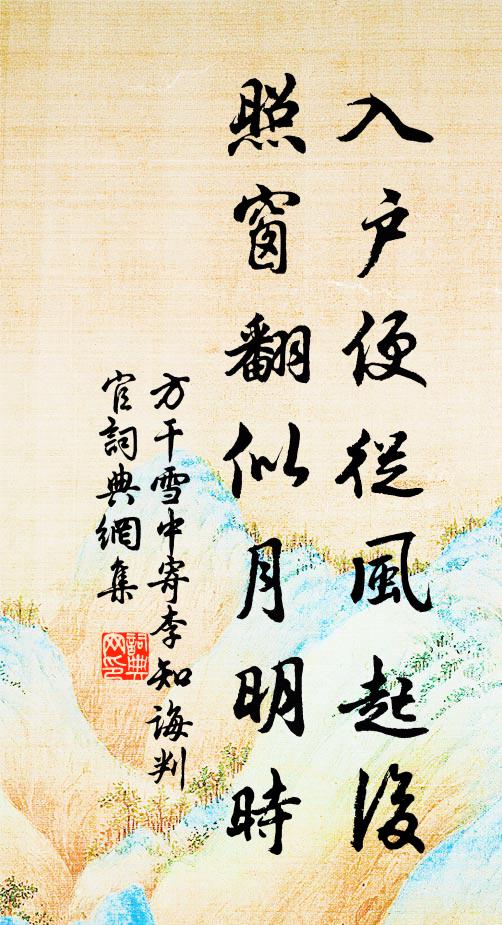 入戶便從風起後
照窗翻似月明時
方干雪中寄李知誨判
官詞典網集
詞典
网印